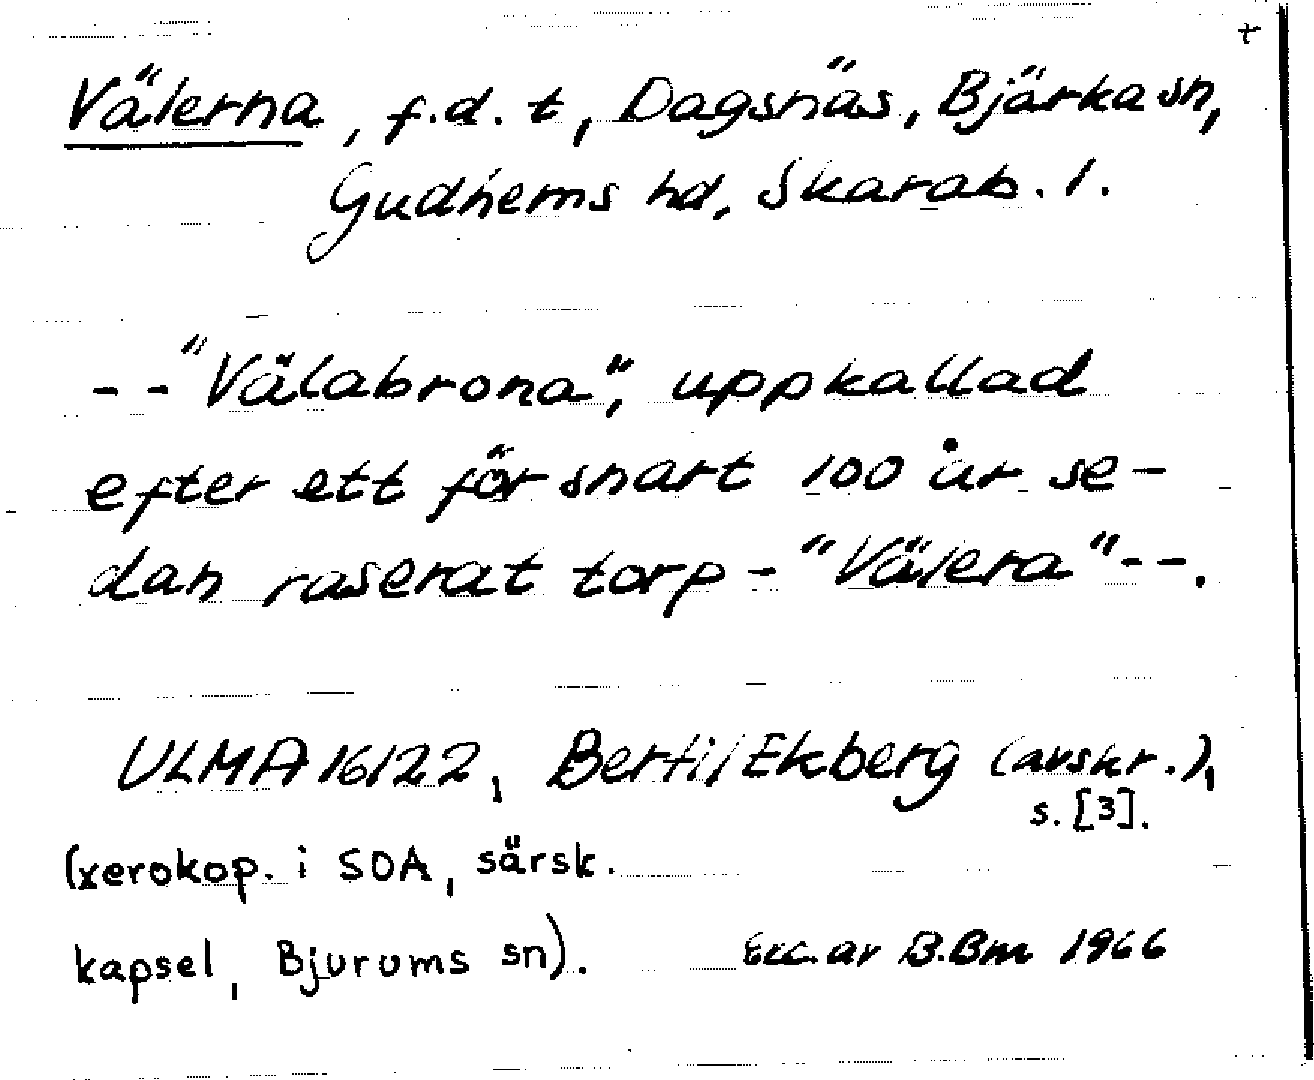 +
Välerna, f.d. t, Dagsnäs, Bjärka sn,
Gudhems hd, Skarab. l.
--"Välabrona", uppkallad
efter ett för snart 100 år se-
dan raserat torp - "Välera"--.
ULMA 16122, Bertil Ekberg (avskr.),
s. [3].
(xerokop. i SOA, särsk.
kapsel, Bjurums sn).
Exc. av B.Bm 1966